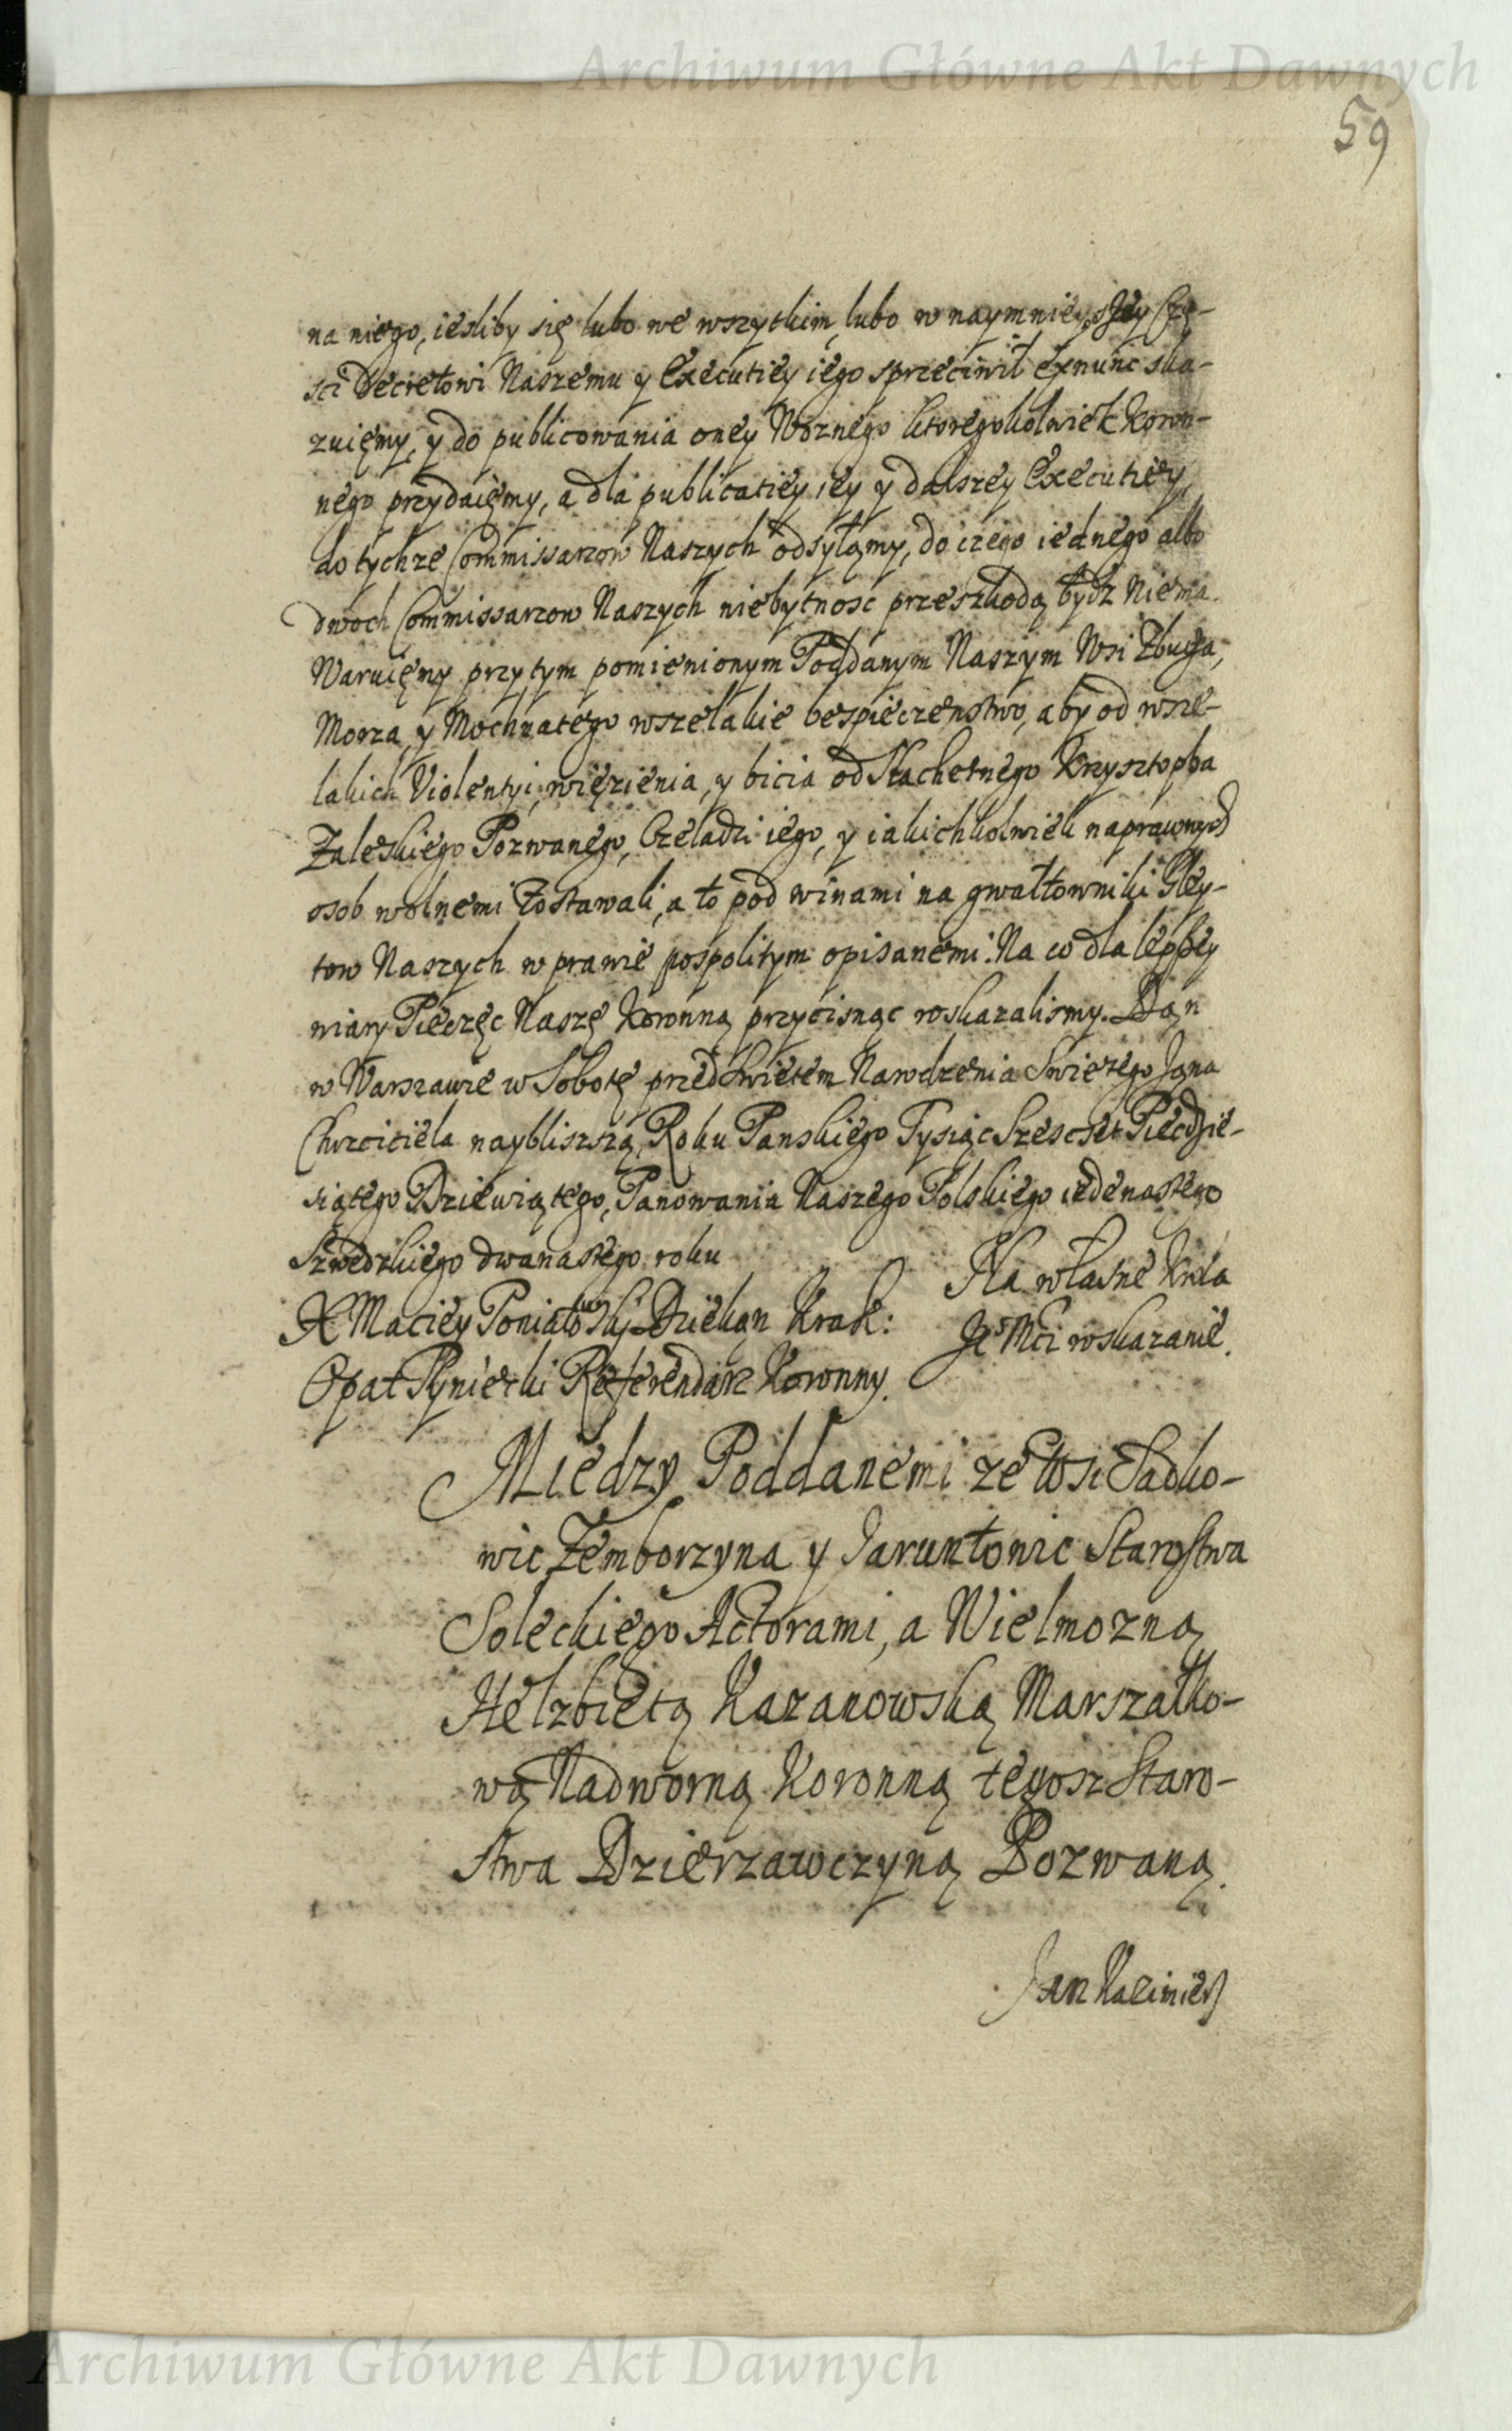 Archiwum Główne Akt Dawnych
59
na niego, iesliby się lubo we wszytkim, lubo w naymnieyszey Czę-
sci Decretowi Naszemu y Executiey iego sprzeciwił exnunc ska-
zuięmy, y do publicowania oney Woznego ktoregokolwiek Koron-
nego przydaięmy, a dla publicatiey iey y dalszey Executiey,
do tychze Commissarzow Naszych odsyłamy, do czego iednego albo
dwoch Commissarzow Naszych niebytnosc przeszkodą bydz Niema.
Waruięmy przytym pomienionym Poddanym Naszym Wsi Zbuya,
Morza, y Mochnatego wszelakie bespieczenstwo, aby od wsze-
lakich Violentyi, więzienia, y bicia od Slachetnego Krzysztopha
Zaleskiego Pozwanego, Czeladzi iego, y iakichkolwiek naprawnych
osob wolnemi Zostawali, a to pod winami na gwałtowniki Gley-
tow Naszych w prawie pospolitym opisanemi. Na co dla lepszey
wiary Pieczęc Naszę Koronną przycisnąc roskazalismy. Dan
w Warszawie w Sobotę przed Swietem Narodzenia Swietego Jana
Chrzciciela naybliszszą, Roku Panskiego Tysiąc Szescset Piecdzie-
siątego Dziewiątego, Panowania Naszego Polskiego iedenastego
Szwedzkiego dwanastego roku
Na własne Krola
X Maciey Poniatowsky Dziekan Krak:
Je° Mci wskazanie.
Opat Płyniecki Referendarz Koronny.
Między Poddanemi ze Wsi Sadko-
wic Zemborzyna y Jaruntowic Starostwa
Soleckiego Actorami, a Wielmozną
Helzbietą Kazanowską Marszałko-
wą Nadworną Koronną tegosz Staro-
stwa Dzierzawczyną Pozwaną.
Jan Kazimierz
Archiwum Główne Akt Dawnych